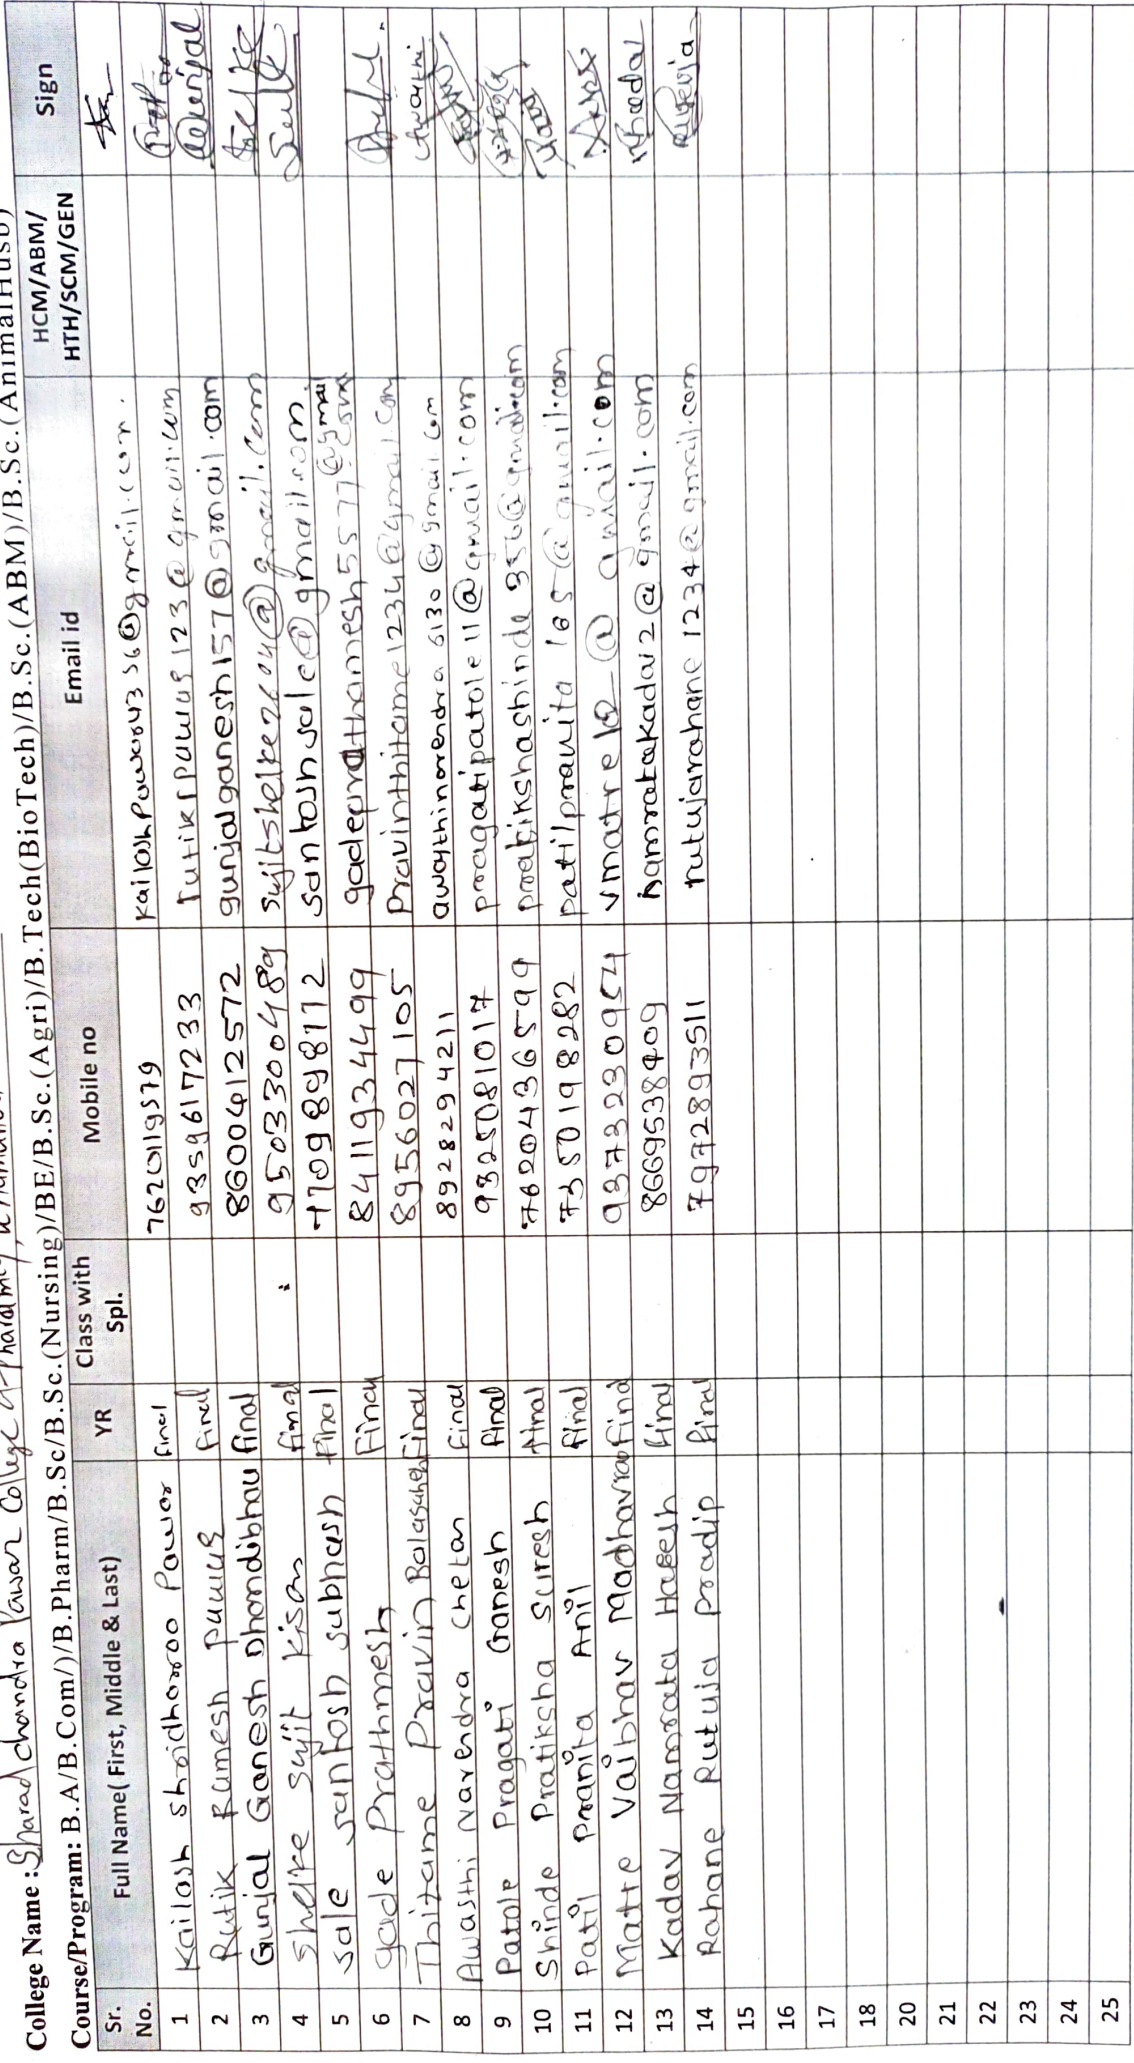 College Name : Sharadchandra Pawar College of Pharmacy,
Course/Program: B.A/B.Com/)/B.Pharm/B.Sc/B.Sc.(Nursing)/BE/B.Sc.(Agri)/B.Tech(BioTech)/B.Sc.(ABM)/B.Sc.(AnimalHusb)
Sr. No. Full Name( First, Middle & Last) YR Class with Spl. Mobile no Email id HCM/ABM/ HTH/SCM/GEN Sign
1 Kailash Shridharrao Pawar Final 7620119579 kailashpawar4356@gmail.com.
2 Rutik Ramesh Pawar Final 9359617233 rutikrpawar123@gmail.com
3 Gunjal Ganesh Dhondibhau Final 8600412572 gunjalganesh157@gmail.com Gunjal
4 Shelke Sujit Kisan Final 9503300489 sujitshelke2604@gmail.com
5 Sale Santosh Subhash Final 7709898112 santoshsale@gmail.com
6 Gade Prathmesh Final 8411934499 gadeprathamesh5577@gmail.com
7 Thitame Pravin Balasaheb Final 8956027105 Pravinthitame1234@gmail.com
8 Awasthi Narendra Chetan Final 8928294211 awasthinarendra6130@gmail.com Awasthi
9 Patole Pragati Ganesh Final 9325081017 pragatipatole11@gmail.com
10 Shinde Pratiksha Suresh Final 7620436599 pratikshashinde356@gmail.com
11 Patil Pranita Anil Final 7350198282 patilpranita165@gmail.com
12 Matre Vaibhav Madhavrao Final 9373230954 vmatre12@gmail.com
13 Kadav Namrata Haresh Final 8669538409 namratakadav2@gmail.com
14 Rahane Rutuja Pradip Final 7972893511 rutujarahane1234@gmail.com Rutuja
15
16
17
18
20
21
22
23
24
25